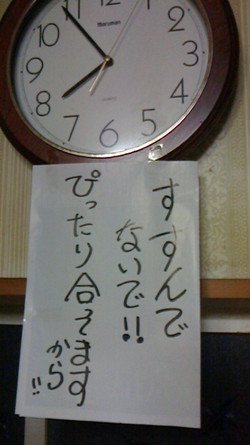 11
1
10
2
9
3
8
4
7
5
6
QUARTZ
すすんで
ないで!!
ぴったり合てます
から!!